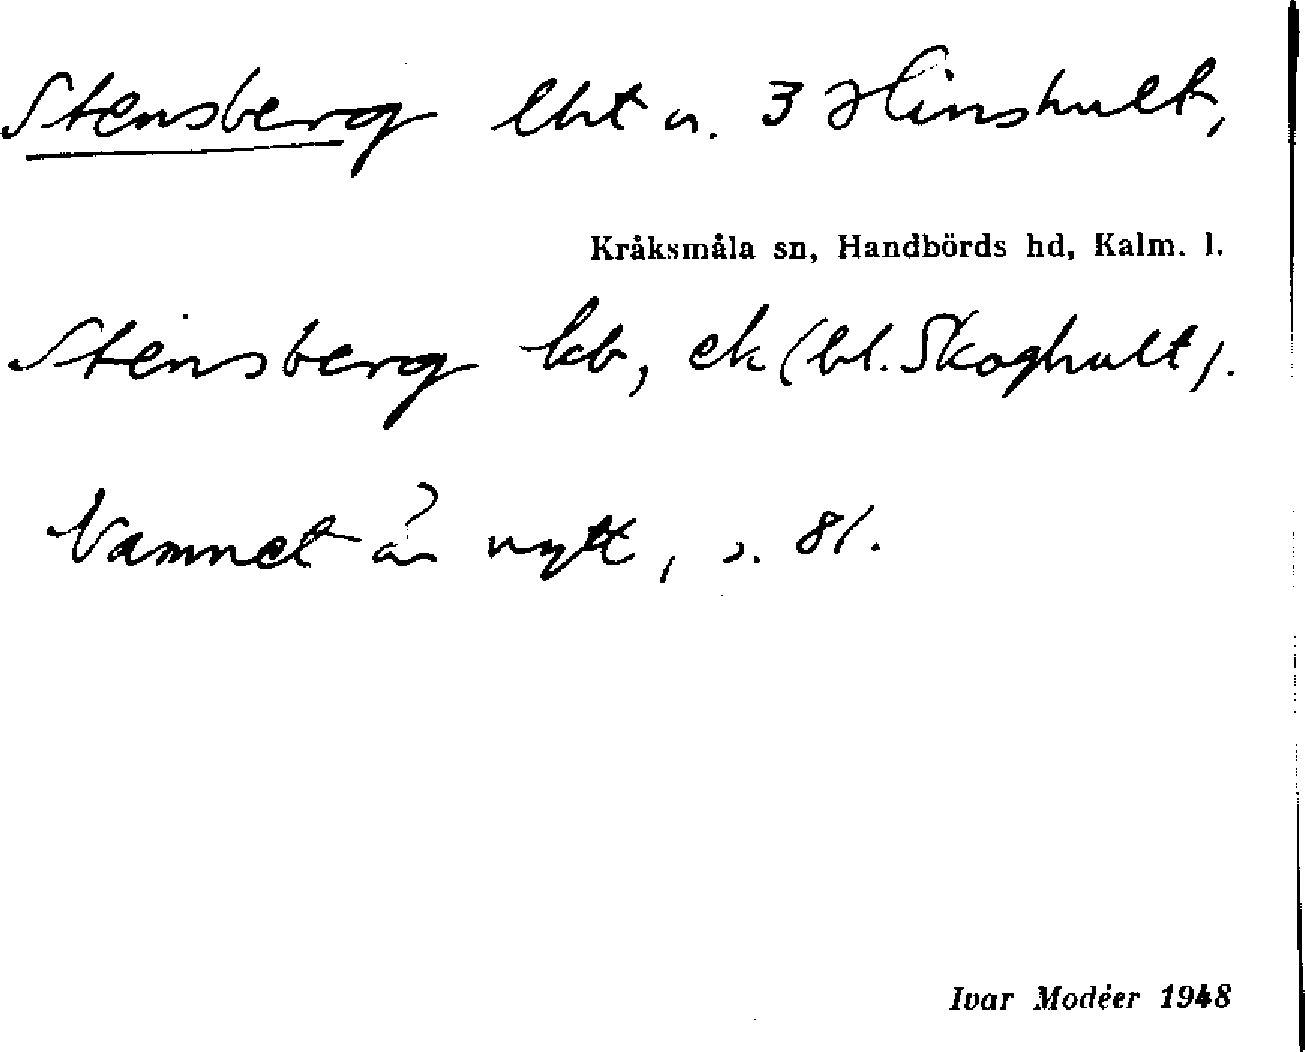 Stensberg lht u. 3 Hinshult,
Kråksmåla sn, Handbörds hd, Kalm. l.
Stensberg kb, ek (bl. Skoghult).
Namnet är nytt, s. 81.
Ivar Modéer 1948